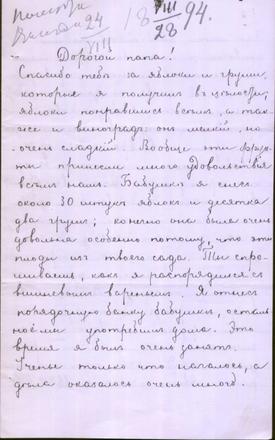 18 VIII/28 94.
24/VIII
Дорогой папа!
Спасибо тебѣ за яблоки и груши,
которые я получилъ въ цѣлости;
яблоки понравились всѣмъ, а так-
же и виноградъ: онъ мелкій, но
очень сладкій. Вообще эти фрук-
ты принесли много удовольствія
всѣмъ намъ. Бабушкѣ я снесъ
около 30 штукъ яблокъ и десятка
два грушъ; конечно она была очень
довольна особенно потому, что эти
плоды изъ твоего сада. Ты спра-
шиваешь, какъ я распорядился съ
вишневымъ вареньемъ. Я отнесъ
порядочную банку бабушкѣ, осталь-
ное мы употребимъ дома. Это
время я былъ очень занятъ.
Ученье только что началось, а
дѣла оказалось очень много.